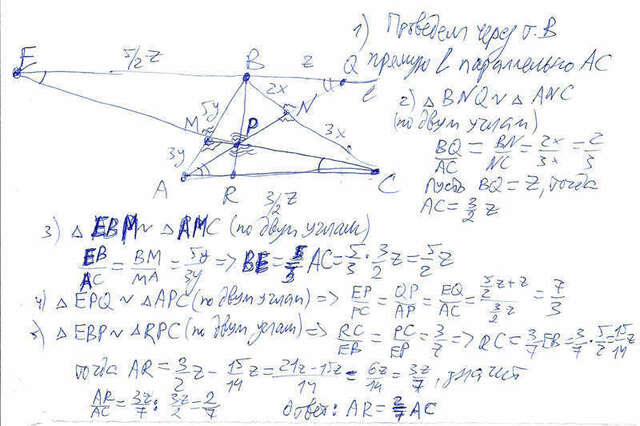 1) Проведем через т. B
прямую ℓ параллельно AC
E 5/2 z B z Q ℓ
2x N 3x
5y M P
3y A R C
3/2 z
2) △ BNQ ~ △ ANC
(по двум углам)
BQ/AC = BN/NC = 2x/3x = 2/3
Пусть BQ = z, тогда
AC = 3/2 z
3) △ EBM ~ △ AMC (по двум углам)
EB/AC = BM/MA = 5y/3y => BE = 5/3 AC = 5/3 · 3/2 z = 5/2 z
4) △ EPQ ~ △ APC (по двум углам) => EP/PC = QP/AP = EQ/AC = (5/2 z + z)/(3/2 z) = 7/3
5) △ EBP ~ △ RPC (по двум углам) => RC/EB = PC/EP = 3/7 => RC = 3/7 EB = 3/7 · 5/2 = 15/14 z
тогда AR = 3/2 z - 15/14 z = (21z - 15z)/14 = 6z/14 = 3z/7, значит
AR/AC = 3z/7 : 3z/2 = 2/7 Ответ: AR = 2/7 AC